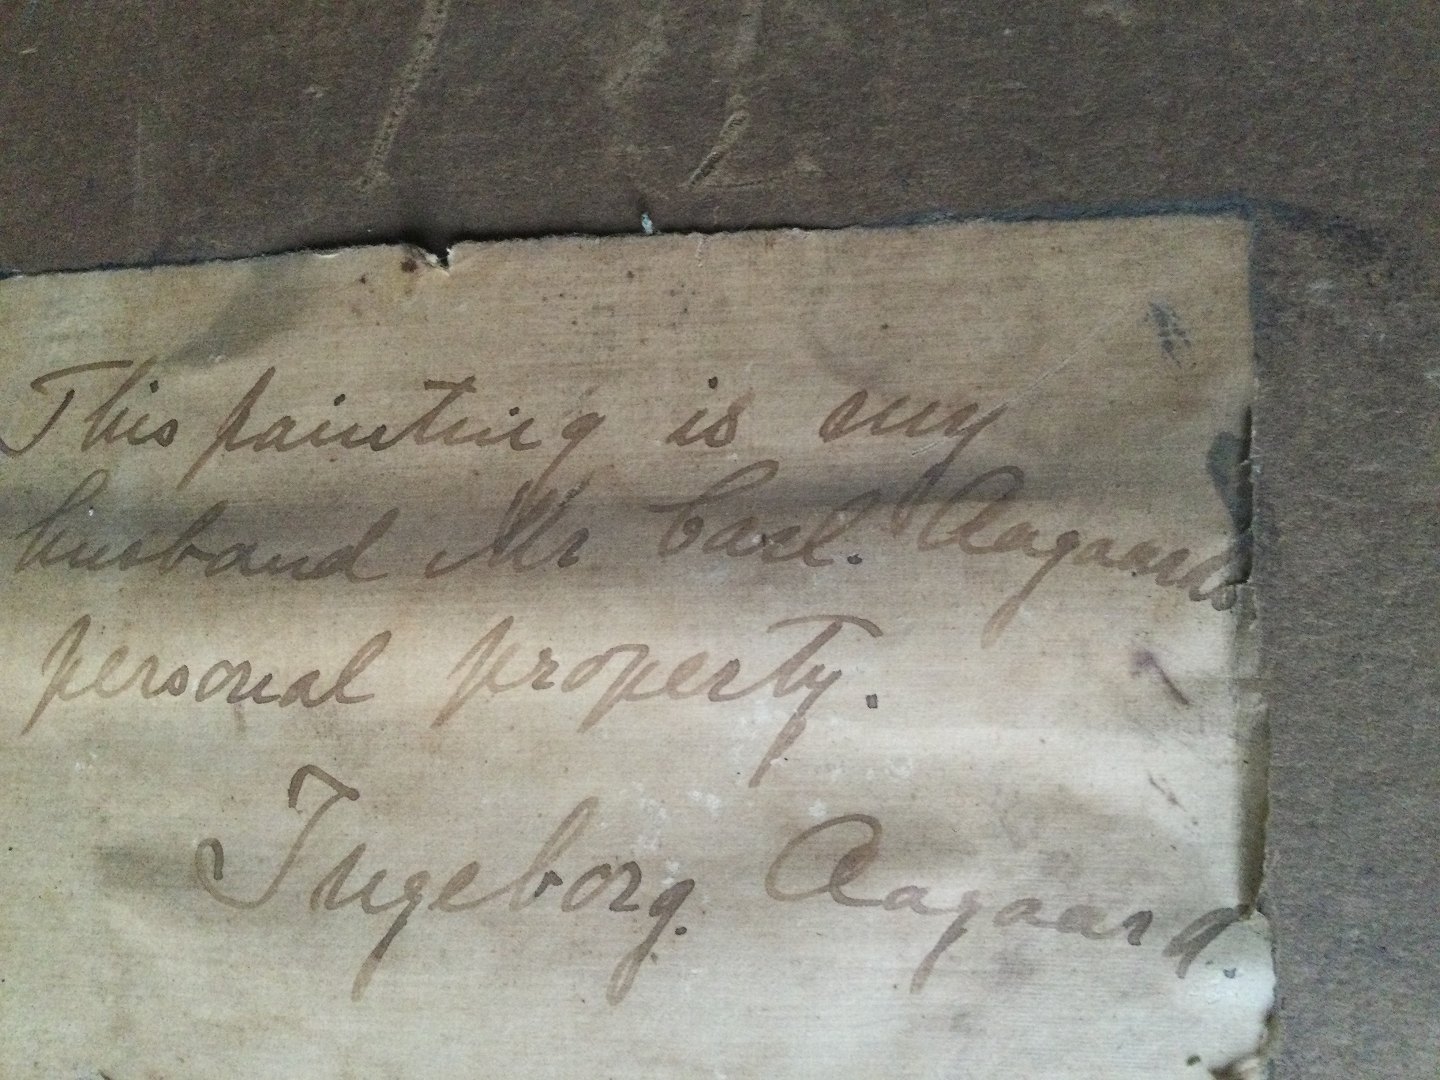 This painting is my
husband Mr Carl. Aagaards
personal property.
Ingeborg. Aagaard.